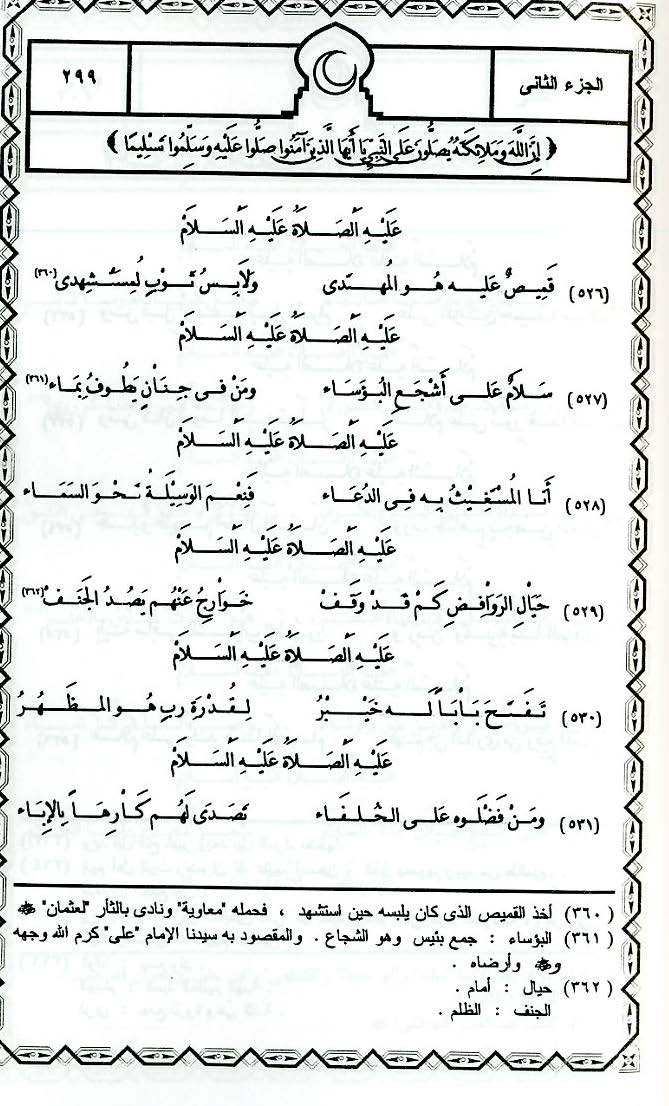 الجزء الثانى
٢٩٩
﴿ إِنَّ اللَّهَ وَمَلَائِكَتَهُ يُصَلُّونَ عَلَى النَّبِيِّ يَا أَيُّهَا الَّذِينَ آمَنُوا صَلُّوا عَلَيْهِ وَسَلِّمُوا تَسْلِيمًا ﴾
عَلَيْهِ الصَّلَاةُ عَلَيْهِ السَّلَامْ
(٥٢٦) قَمِيصٌ عَلَيه هُو المهتَدى وَلَابِسُ ثَوْبٍ لُيسْتَشْهدى (٣٦٠)
عَلَيْهِ الصَّلَاةُ عَلَيْهِ السَّلَامْ
(٥٢٧) سَلَامٌ عَلَى أَشْجَعِ البُؤَسَاء ومَنْ فى جِنَانٍ يَطُوفُ بمَاء (٣٦١)
عَلَيْهِ الصَّلَاةُ عَلَيْهِ السَّلَامْ
(٥٢٨) أَنَا المُسْتَغِيثُ بِه فِى الدُعَاء فَنِعْمَ الوَسِيلَةُ نَحْوَ السَمَاء
عَلَيْهِ الصَّلَاةُ عَلَيْهِ السَّلَامْ
(٥٢٩) حَيَالِ الرَوَافِضِ كَمْ قَدْ وَقَفْ خَوارِجُ عَنْهُم يَصُدُ الجَنَفْ (٣٦٢)
عَلَيْهِ الصَّلَاةُ عَلَيْهِ السَّلَامْ
(٥٣٠) تَفَتَّحَ بَابَاً لَه خَيْبَرُ لِقُدْرَة ربٍ هُو المظهَرُ
عَلَيْهِ الصَّلَاةُ عَلَيْهِ السَّلَامْ
(٥٣١) ومَنْ فَضَلُوه عَلى الخُلفَاء تَصَدَى لَهُم كَارِهَاً بالإِبَاء
(٣٦٠) أخذ القميص الذى كان يلبسه حين استشهد ، فحمله "معاوية" ونادى بالثأر "لعثمان" ﷺ
(٣٦١) البؤساء : جمع بئيس وهو الشجاع . والمقصود به سيدنا الإمام "على" كرم الله وجهه
و وأرضاه .
(٣٦٢) حيال : أمام .
الجنف : الظلم .